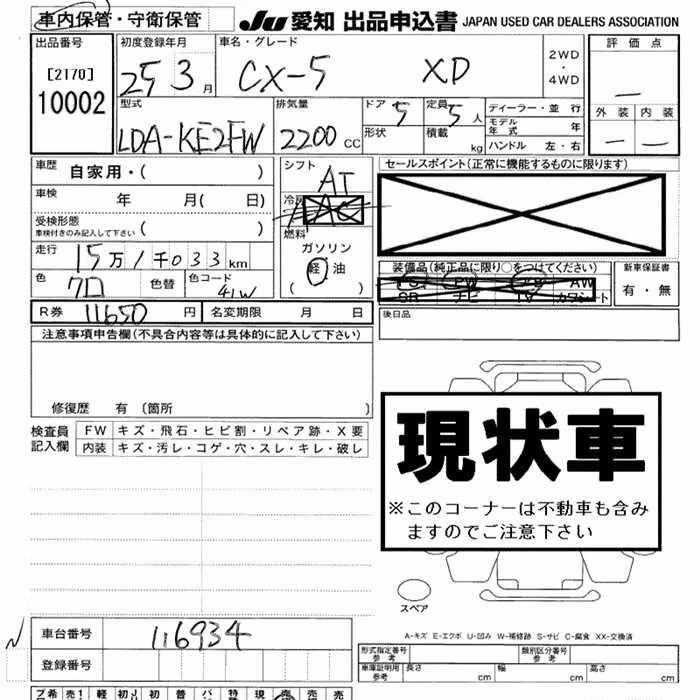 車内保管・守衛保管 JU 愛知 出品申込書 JAPAN USED CAR DEALERS ASSOCIATION
出品番号 初度登録年月 車名・グレード 評価点
[2170] 25 3 月 CX-5 XD 2WD・4WD
10002 外装 内装
型式 排気量 ドア 5 定員 5 人 ディーラー・並 行
LDA-KE2FW 2200 CC 形状 積載 kg モデル年式 年
ハンドル 左・右
車歴 自家用・( )
シフト AT
セールスポイント(正常に機能するものに限ります)
車検 年 月( 日)
冷房 AAC
受検形態 ( )
車検付きのみ記入して下さい
燃料
ガソリン
走行 15万1千033km
軽油
( )
装備品(純正品に限り○をつけてください) 新車保証書
色 クロ 色替 色コード 41W
PS PW AW
SR ナビ TV カワシート
有・無
R券 11650 円 名変期限 月 日
後日品
注意事項申告欄(不具合内容等は具体的に記入して下さい)
修復歴 有〔箇所 〕
検査員記入欄 FW キズ・飛石・ヒビ割・リペア跡・X要
内装 キズ・汚レ・コゲ・穴・スレ・キレ・破レ
現状車
※このコーナーは不動車も含み
ますのでご注意下さい
スペア
車台番号 116934
登録番号
A-キズ E-エクボ U-凹み W-補修跡 S-サビ C-腐食 XX-交換済
形式指定番号参考 類別区分番号参考
車庫証明用参考 長さ cm 幅 cm 高さ cm